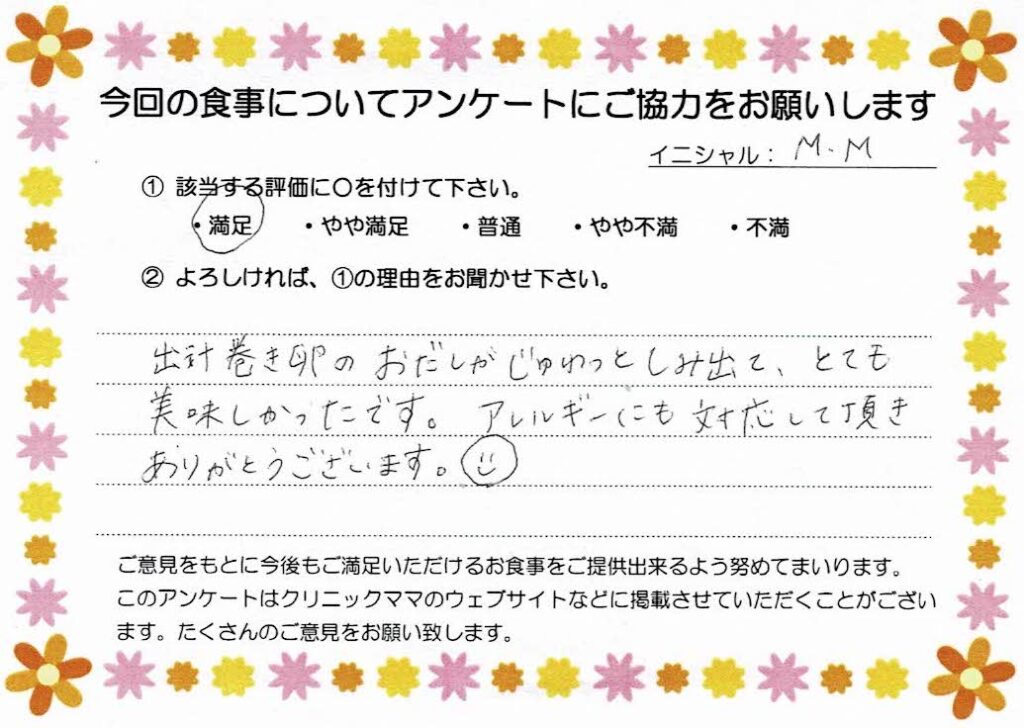 今回の食事についてアンケートにご協力をお願いします
イニシャル： M.M
① 該当する評価に〇を付けて下さい。
・満足 ・やや満足 ・普通 ・やや不満 ・不満
② よろしければ、①の理由をお聞かせ下さい。
出汁巻き卵のおだしがじゅわっとしみ出て、とても
美味しかったです。アレルギーにも対応して頂き
ありがとうございます。
ご意見をもとに今後もご満足いただけるお食事をご提供出来るよう努めてまいります。
このアンケートはクリニックママのウェブサイトなどに掲載させていただくことがござい
ます。たくさんのご意見をお願い致します。